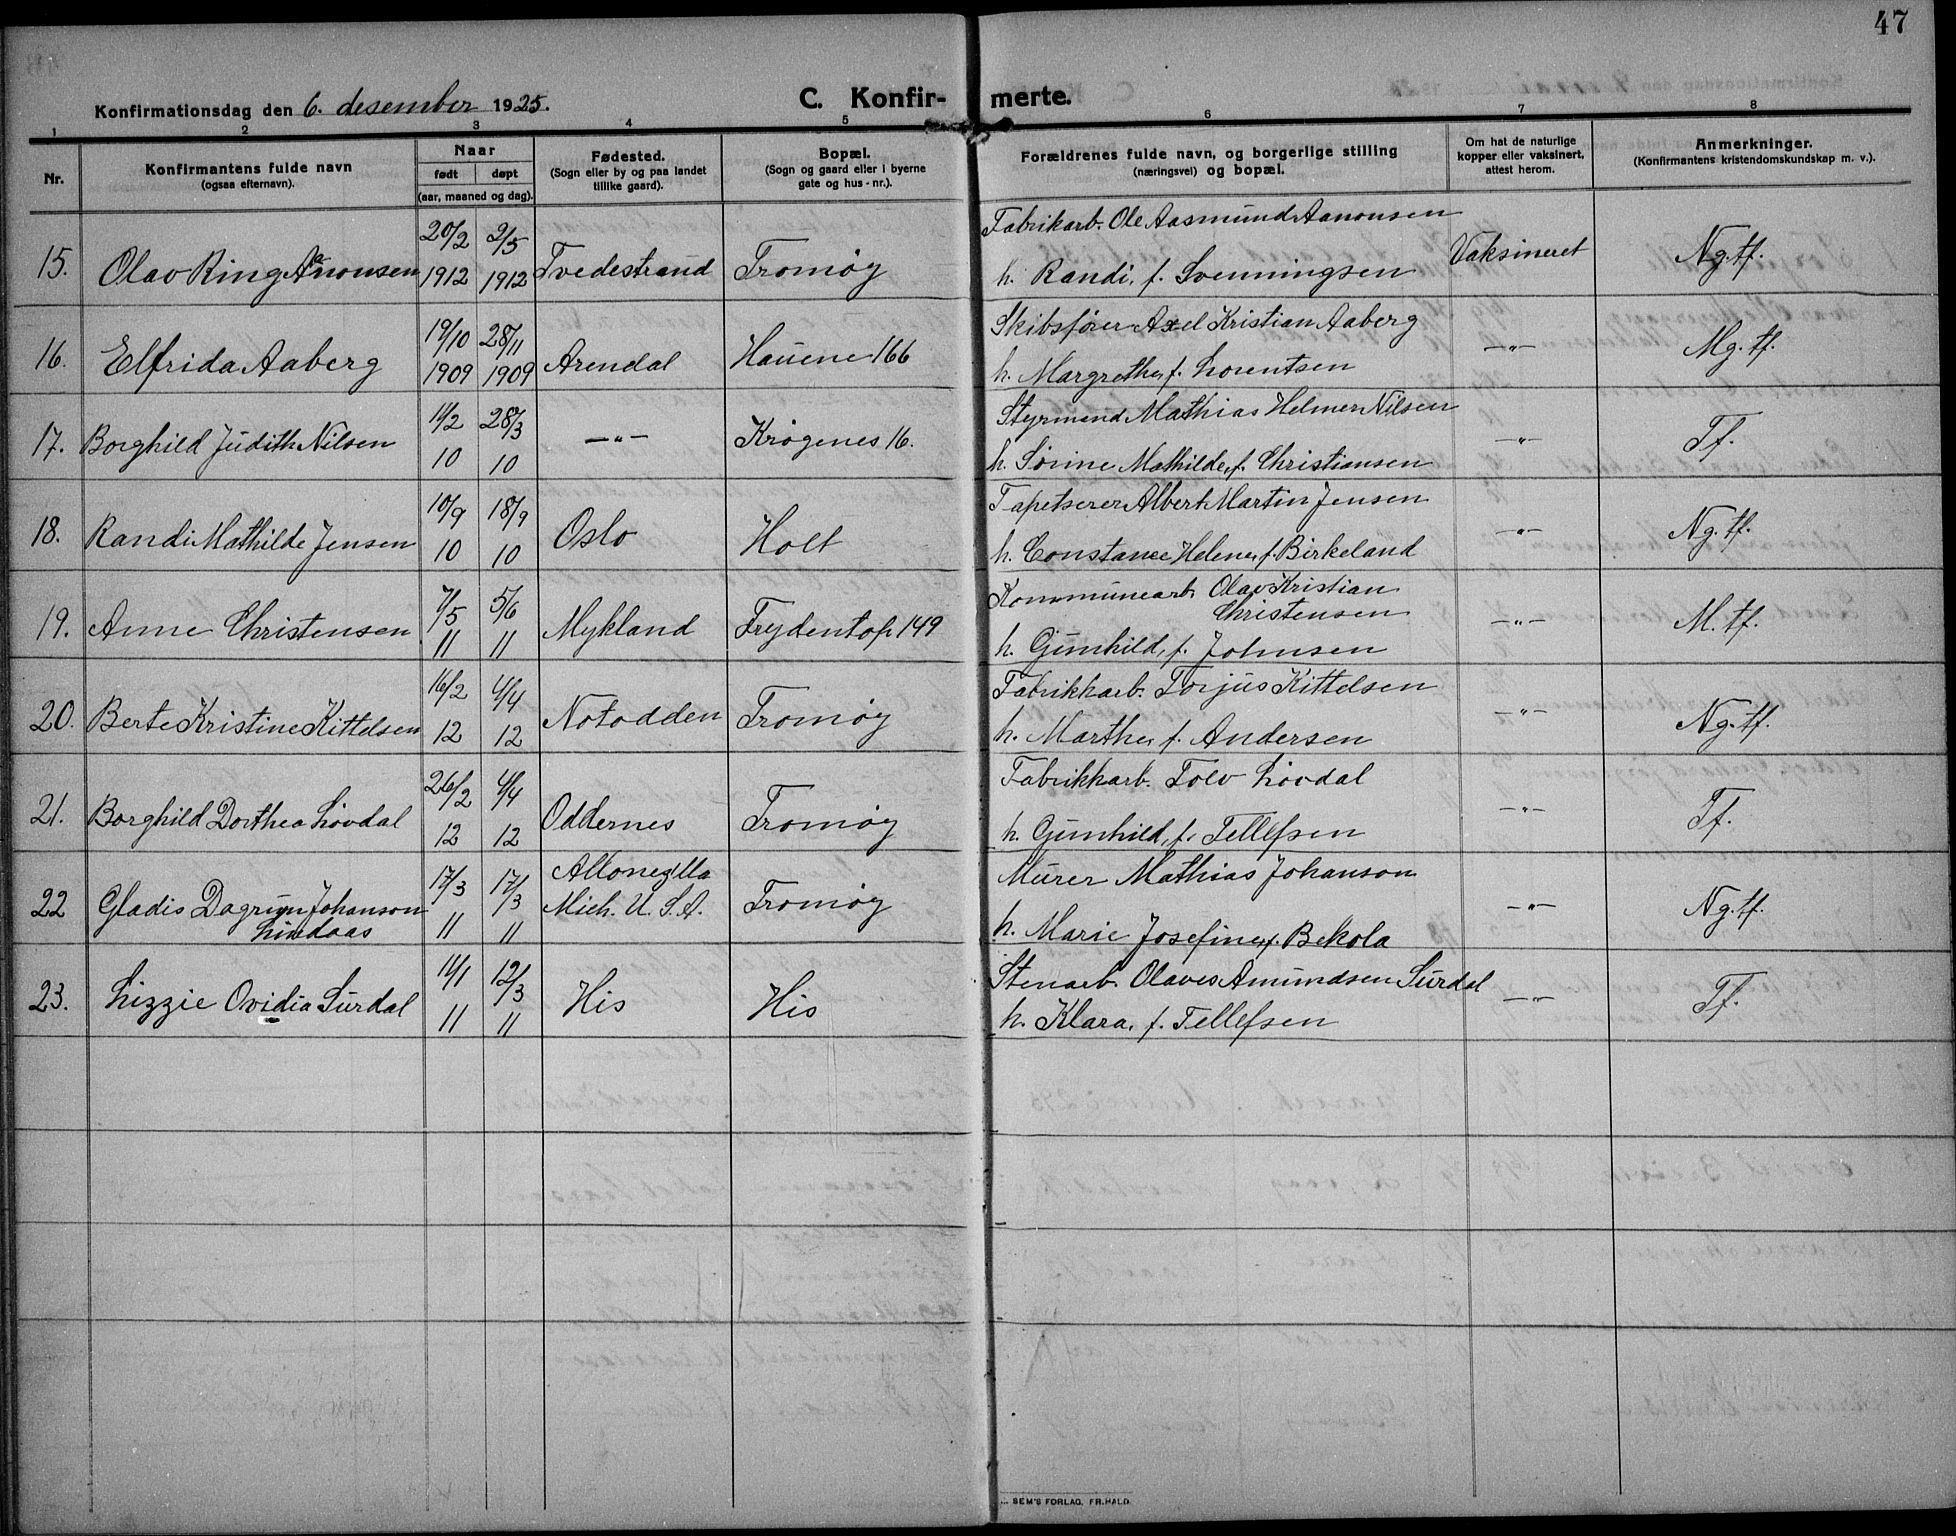 47
Konfirmationsdag den 6. desember 1925.
C. Konfir- merte.
1 2 3 4 5 6 7 8
Nr.
Konfirmantens fulde navn
(ogsaa efternavn).
Naar
født døpt
(aar, maaned og dag).
Fødested.
(Sogn eller by og paa landet
tillike gaard).
Bopæl.
(Sogn og gaard eller i byerne
gate og hus-nr.).
Forældrenes fulde navn, og borgerlige stilling
(næringsvei) og bopæl.
Om hat de naturlige
kopper eller vaksinert,
attest herom.
Anmerkninger.
(Konfirmantens kristendomskundskap m. v.).
20/2 2/5 Fabrikarb. Ole Aasmund Aanonsen
15. Olav Ring Aanonsen 1912 1912 Tvedestrand Tromøy h. Randi, f. Svenningsen Vaksineret Ng. tf.
19/10 28/11 Skibsfører Axel Kristian Aaberg
16. Elfrida Aaberg 1909 1909 Arendal Hauene 166 h. Margrethe, f. Lorentsen —"— Mg. tf.
11/2 28/3 Styrmend Mathias Helmer Nilsen
17. Borghild Judith Nilsen 10 10 —"— Krøgenes 16. h. Sørine Mathilde, f. Christiansen —"— Tf.
10/9 18/9 Tapetserer Albert Martin Jensen
18. Randi Mathilde Jensen 10 10 Oslo Holt h. Constance Helene, f. Birkeland —"— Ng. tf.
7/5 5/6 Kommunearb. Olav Kristian
Christensen
19. Anne Christensen 11 11 Mykland Frydentop 149 h. Gunhild, f. Johnsen —"— M. tf.
16/2 4/4 Fabrikkarb. Torjus Kittelsen
20. Berte Kristine Kittelsen 12 12 Notodden Tromøy h. Marthe, f. Andersen —"— Ng. tf.
26/2 4/4 Fabrikkarb. Tolv Løvdal
21. Borghild Dorthea Løvdal 12 12 Oddernes Tromøy h. Gunhild, f. Tellefsen —"— Tf.
17/3 17/3 Murer Mathias Johanson
22 Gladis Dagrun Johanson 11 11 Mich. U. S. A. Tromøy h. Marie Josefine, f. Bekola —"— Ng. tf.
Lindaas
11/1 12/3 Stenarb. Olaves Amundsen Surdal
23. Lizzie Ovidia Surdal 11 11 His His h. Klara, f. Tellefsen —"— Tf.
SEM'S FORLAG, FR.HALD.